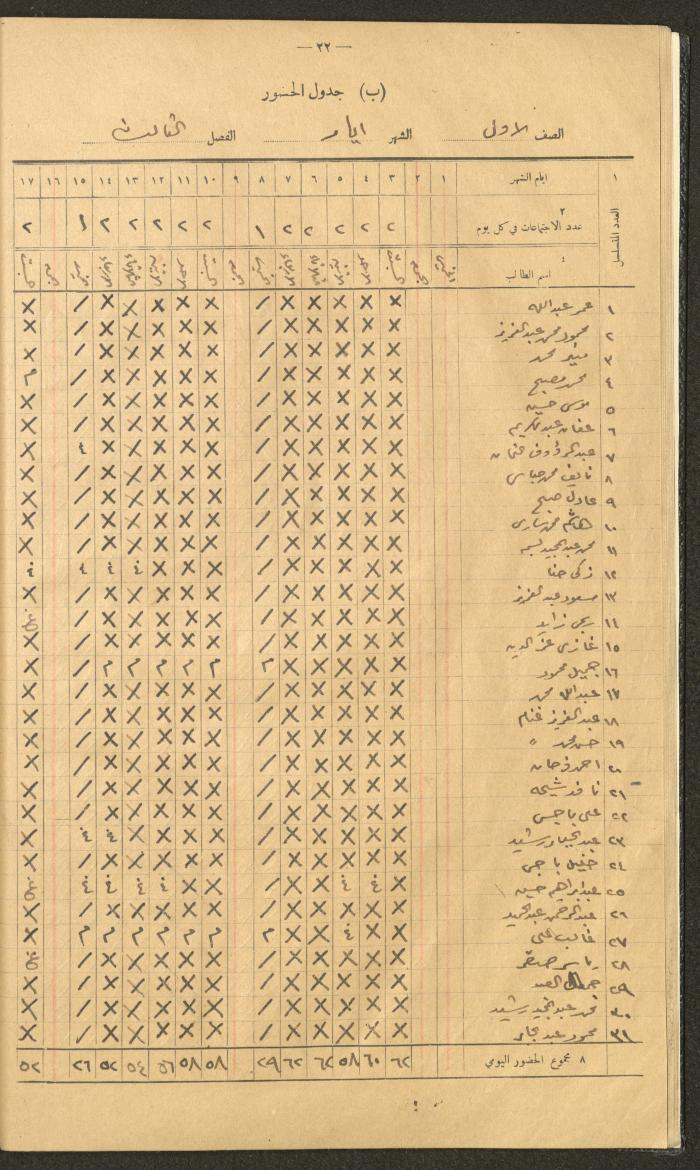 — ٢٢ —
(ب) جدول الحضور
الصف الاول الشهر ايار الفصل الثالث
١ العدد المتسلسل
ايام الشهر ١ ٢ ٣ ٤ ٥ ٦ ٧ ٨ ٩ ١٠ ١١ ١٢ ١٣ ١٤ ١٥ ١٦ ١٧
٢ عدد الاجتماعات في كل يوم ٢ ٢ ٢ ٢ ٢ ١ ٢ ٢ ٢ ٢ ٢ ١ ٢
٤ اسم الطالب الخميس الجمعة السبت الاحد الاثنين الثلاثاء الاربعاء الخميس الجمعة السبت الاحد الاثنين الثلاثاء الاربعاء الخميس الجمعة السبت
١ عمر عبدالله X X X X X / X X X X X / X
٢ محمود محمد عبدالعزيز X X X X X / X X X X X / X
٣ محمد X X X X X / X X X X X / X
٤ محمد مصبح X X X X X / X X X X X / م
٥ موسى حسين X X X X X / X X X X X / X
٦ عفان عبدالكريم X X X X X / X X X X X / X
٧ عبدالرؤوف عثمان X X X X X / X X X X X غ X
٨ نايف محمد عباسي X X X X X / X X X X X / X
٩ عادل صبح X X X X X / X X X X X / X
١٠ هاشم محمد ساري X X X X X / X X X X X / X
١١ محمد عبدالمجيد X X X X X / X X X X X / X
١٢ زكي حنا X X X X X / X X X غ غ غ غ
١٣ مسعود عبدالعزيز X X X X X / X X X X X / X
١٤ زايد X X X X X / X X X X X /
١٥ غازي عز الدين X X X X X / X X X X X / X
١٦ جميل محمود X X X X X م م م م م م / X
١٧ عبدالله محمد X X X X X / X X X X X / X
١٨ عبدالعزيز غنام X X X X X / X X X X X / X
١٩ حسن محمد " X X X X X / X X X X X / X
٢٠ احمد فرحان X X X X X / X X X X X / X
٢١ نافذ شيحه X X X X X / X X X X X / X
٢٢ علي ناجي X X X X X / X X X X X / X
٢٣ عبدالجبار رشيد X X X X X / X X X X غ غ X
٢٤ خليل ناجي X X X X X / X X X X X / X
٢٥ عبدابراهيم حسين X غ غ X X / X X غ غ غ غ
٢٦ عبدالرحمن عبدالحميد X X X X X / X X X X X / X
٢٧ غالب علي X X غ X X م م م م م م م X
٢٨ ياسر X X X X X / X X X X X /
٢٩ جمال العبد X X X X X / X X X X X / X
٣٠ محمد عبدالمجيد رشيد X X X X X / X X X X X / X
٣١ محمود عبدجابر X X X X X / X X X X X / X
٨ مجموع الحضور اليومي ٦٢ ٦٠ ٥٨ ٦٢ ٦٢ ٢٩ ٥٨ ٥٨ ٥٦ ٥٤ ٥٢ ٢٦ ٥٢